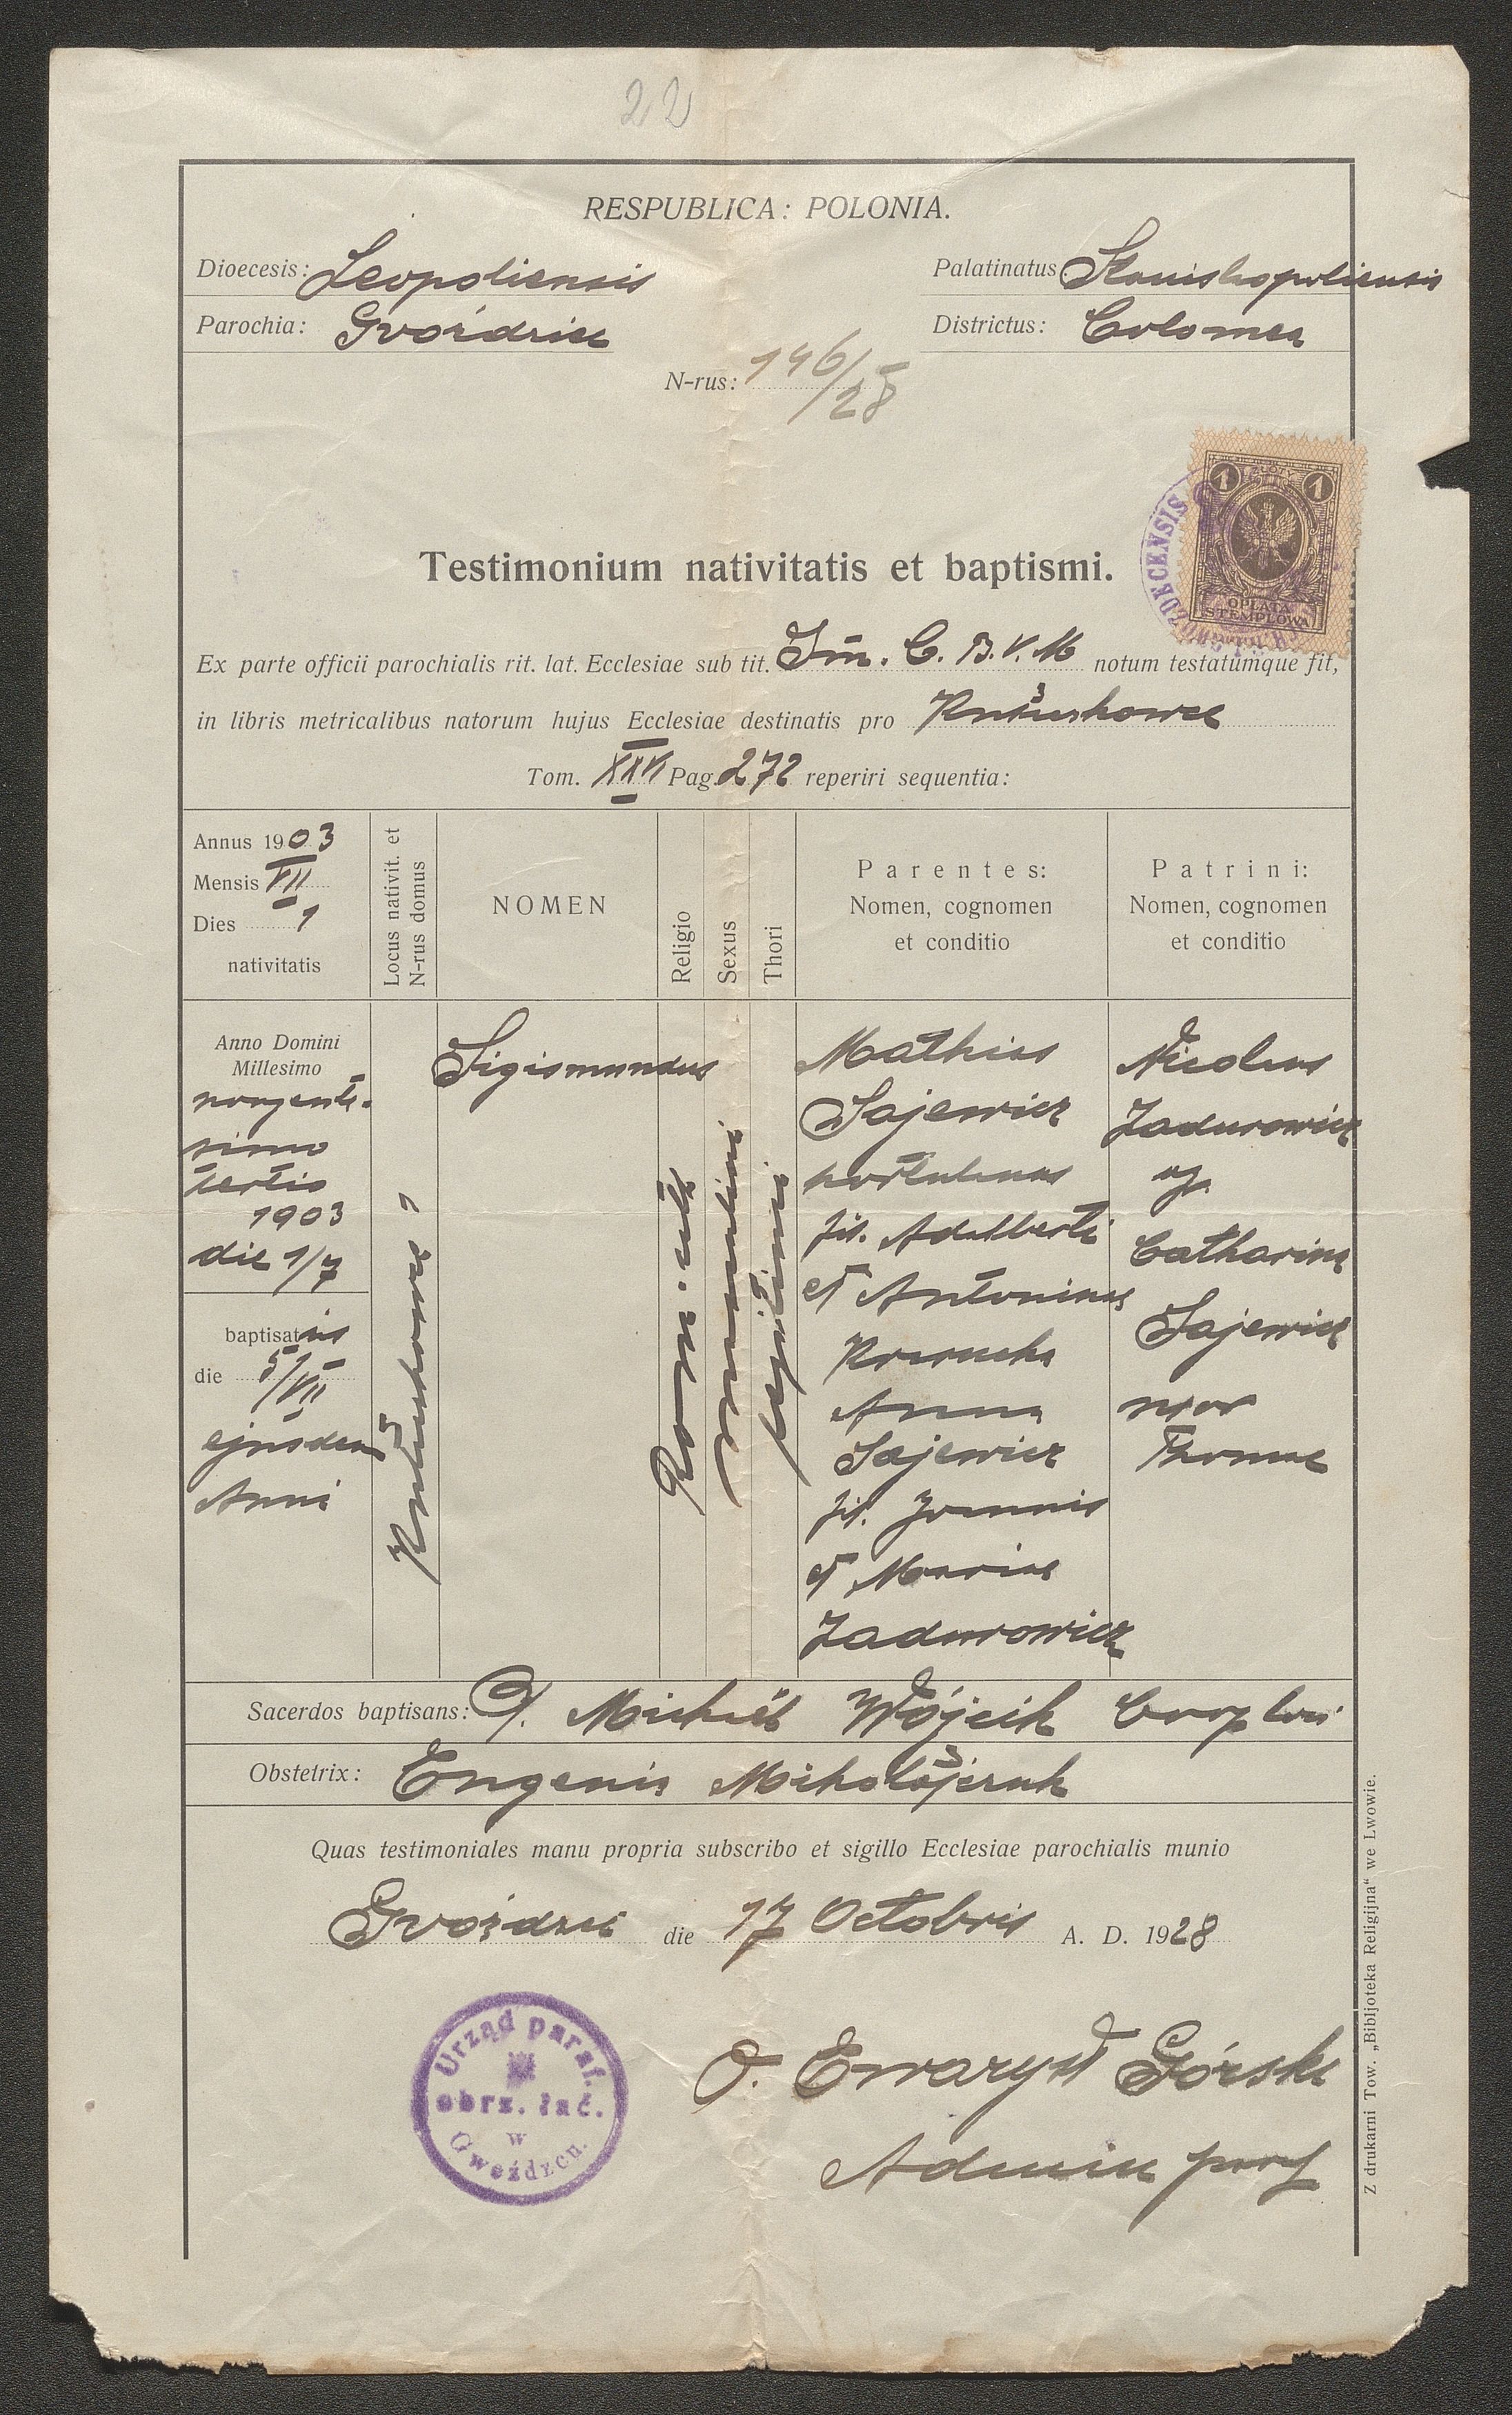 22
RESPUBLICA: POLONIA.
Dioecesis: Leopoliensis
Palatinatus: Stanislaopoliensis
Parochia: Gvoździec
Districtus: Colomea
N-rus: 146/28
1 ZŁOTY 1
OPŁATA
STEMPLOWA
Testimonium nativitatis et baptismi.
Ex parte officii parochialis rit. lat. Ecclesiae sub tit. Im. C. B. V. M notum testatumque fit,
in libris metricalibus natorum hujus Ecclesiae destinatis pro
Tom. XXVI Pag. 272 reperiri sequentia:
Annus 1903
Mensis VII
Dies 1
nativitatis
Locus nativit. et
N-rus domus
NOMEN
Religio
Sexus
Thori
Parentes:
Nomen, cognomen
et conditio
Patrini:
Nomen, cognomen
et conditio
Anno Domini
Millesimo
nongente-
simo
tertio
1903
die 1/7
baptisatus
die 5/VII
ejusdem
Anni
Sigismundus
Rom. cath
masculini
legitimi
Mathias
Sajewicz
fil. Adalberti
et Antoninae
Anna
Sajewicz
fil. Joannis
et Mariae
Zadurowicz
Nicolaus
Zadurowicz
Catharina
Sajewicz
uxor
Thomae
Sacerdos baptisans: O. Michaël Wójcik Cooploci
Obstetrix: Eugenia Mikołajczuk
Quas testimoniales manu propria subscribo et sigillo Ecclesiae parochialis munio
Gvoździec die 17 Octobris A. D. 1928
Urząd paraf.
obrz. łać.
w
Gwoźdzcu.
O. Ewaryst Górski
Admin par
Z drukarni Tow. „Bibljoteka Religijna" we Lwowie.